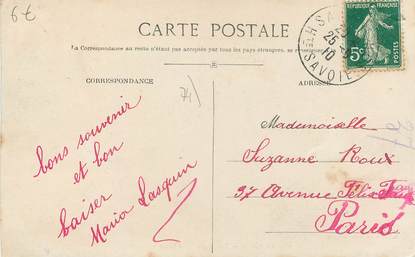 6€
CARTE POSTALE
La Correspondance au recto n'est pas acceptée par tous les pays étrangers, se
CORRESPONDANCE
ADRESSE
RÉPUBLIQUE FRANÇAISE
5c
POSTES
25
10
SAVOIE
74)
bons souvenir
et bon
baiser
Maria Lasquin
Mademoiselle
Suzanne Roux
37 Avenue Félix
Paris